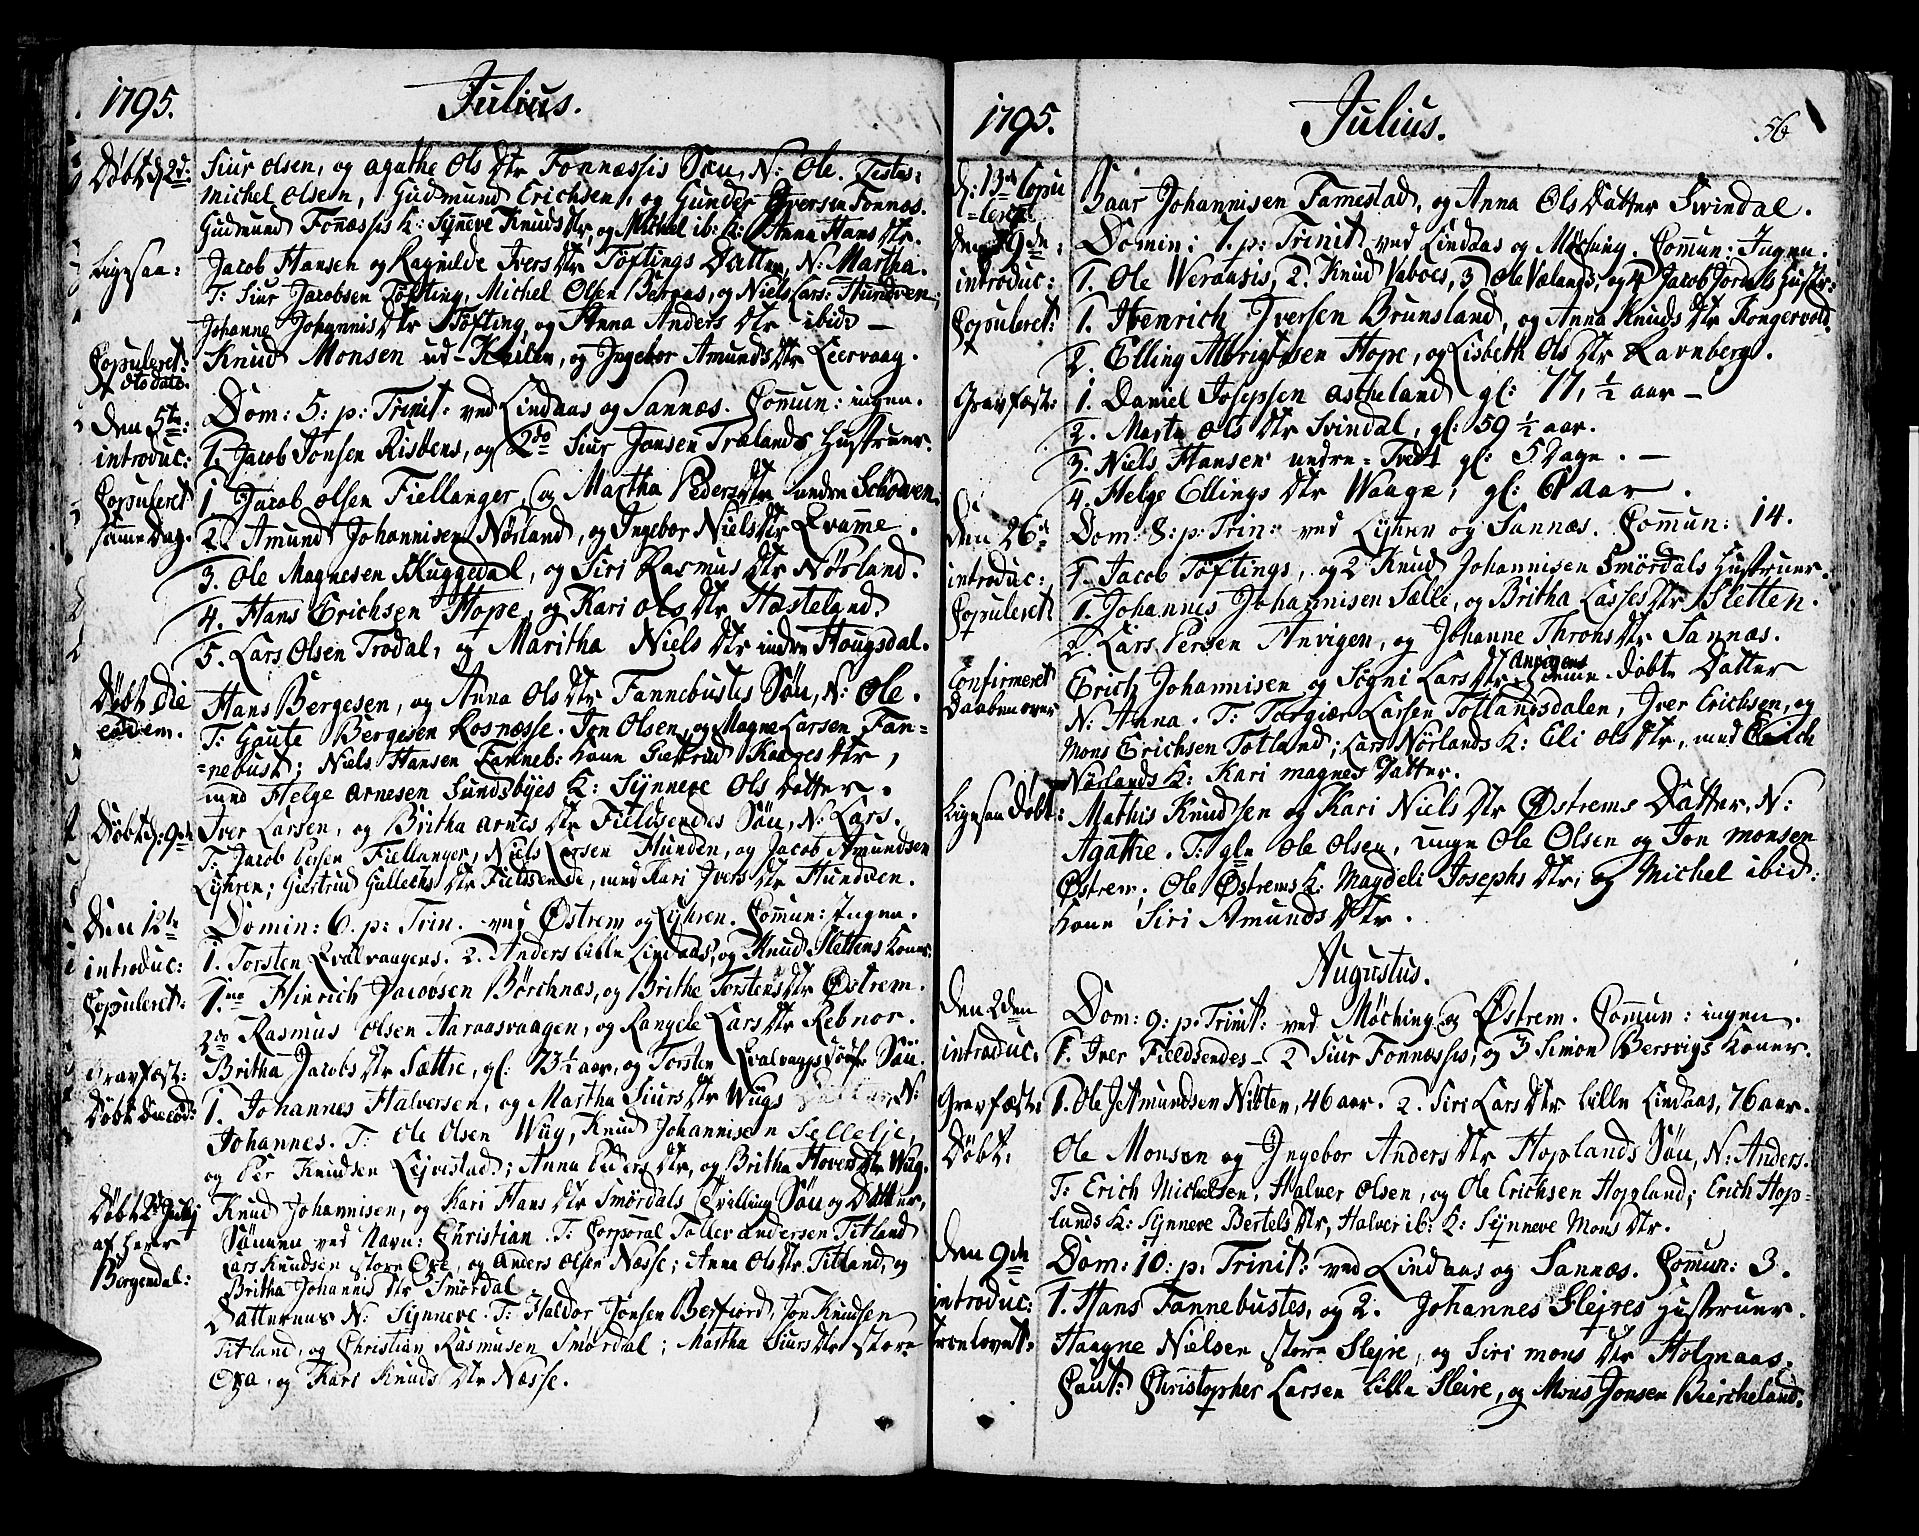 1795. Julius.
Døbt d: 2d: Siur Olsen, og Agathe Ols Dtr Fonnæssis Søn, N: Ole. Testes:
Michel Olsen, Gudmund Erichsen, og Gunder Iversen Fonnæs.
Gudmund Fonnæssis K: Synneve Knuds Dtr, og Michel ib: K: Anna Hans Dtr.
Ligesaa: Jacob Hansen og Ragnilde Ivers Dtr Töftings Datter, N: Martha.
T: Siur Jacobsen Töfting, Michel Olsen Bernas, og Niels Lars: Hundven;
Johanne Johannis Dtr Töfting, og Anna Anders Dtr ibid. —
Copuleret: Knud Monsen ud- , og Ingebor Amunds Dtr Leervaag.
dto dato.
Den 5te: Dom: 5: p: Trinit: ved Lindaas og Sannæs. Comun: ingen.
introduc: 1. Jacob Jonsen Risöens, og 2do Siur Jansen Trælands Hustruer.
Copuleret 1. Jacob Olsen Fiellanger, og Martha Peders Dtr nedre Schodven.
samme Dag. 2. Amund Johannisen Nörland, og Ingebor Niels Dtr Qvamme.
3. Ole Magnesen Skuggedal, og Siri Rasmus Dtr Nörland.
4. Hans Erichsen Hope, og Kari Ols Dtr Hosteland.
5. Lars Olsen Trodal, og Maritha Niels Dtr indre Hougsdal.
Døbt die Hans Bergesen, og Anna Ols Dtr Fannebustes Søn, N: Ole.
eodem. T: Gaute Bergesen Rosnæsse. Jon Olsen, og Magne Larsen Fan=
=nebust; Niels Hansen Fanneb: Kone Giertrud Knages Dtr,
med Helge Arnesen Sundsbyes K: Synneve Ols Datter.
Døbt d: 9de Iver Larsen, og Britha Arnes Dtr Fieldsendes Søn, N: Lars.
T: Jacob Persen Fiellanger, Niels Larsen Hunden, og Jacob Amundsen
Lyhren; Giertrud Gullechs Dtr Fieldsende, med Kari Ivers Dtr Hundven.
Den 12te Domin: 6. p: Trin. ved Østrem og Lyhren. Comun: Ingen.
introduc: 1. Torsten Qvalvaagens. 2. Anders lille Lindaas, og Knud Slettens Koner.
Copuleret: 1mo Hinrich Jacobsen Börchnæs, og Brithe Torstens Dtr Østrem.
2do Rasmus Olsen Aaraasvaagen, og Rangele Lars Dtr Rebnor.
Gravfæst: Britha Jacobs Dtr Sættre, gl: 73½ aar, og Torsten Qvalvaags døbte Søn.
Døbt die eod: 1. Johannes Halversen, og Martha Siurs Dtr Wügs N:
Johannes. T: Ole Olsen Wüg, Knud Johannisen Sellelje,
og Per Knudsen Lejvestad; Anna Peders Dtr, og Britha Hovers Dtr Wüg.
Døbt 2. Julij Knud Johannisen, og Kari Hans Dtr Smördals Tvilling Søn og Datter,
af Herr Sönnen ved Navn: Christian. T: Corporal Toller Andersen Titland
Bergendal: Lars Knudsen store Oxe, og Anders Olsen Næsse; Anna Ols Dtr Titland, og
Britha Johannis Dtr Smördal
Datterens N: Synneve. T: Haldor Jonsen Berfiord, Jon Knudsen
Titland, og Christian Rasmusen Smördal; Martha Siurs Dtr store
Oxa, og Kari Knuds Dtr Næsse.
1795. Julius. 56
d: 13de Copu Baar Johannisen Famestad, og Anna Ols Datter Svindal.
=leret
den 19de: Domin: 7. p: Trinit ved Lindaas og Möching. Comun: Ingen.
introduc: 1. Ole Weraasis, 2. Knud Vaboes, 3 Ole Valands, og 4 Jacob Jordals Hustr:
Copuleret: 1. Henrich Iversen Brunsland, og Anna Knuds Dtr Kongervold.
2. Elling Albrigtsen Hope, og Lisbeth Ols Dtr Ravnberg.
Gravfæst: 1. Daniel Josepsen Astheland gl: 77, ½ aar —
2. Marta Ols Dtr Svindal, gl: 59 ½ aar.
3. Niels Hansen nedre=Tvedt gl: 5 Dage. —
4. Helge Ellings Dtr Waage, gl: 6 aar.
Den 26de Dom: 8: p: Trin: ved Lyhren og Sannæs. Comun: 14.
introduc: 1. Jacob Töftings, og 2 Knud Johannisen Smördals Hustruer.
Copuleret 1. Johannes Johannisen Sælle, og Britha Lasses Dtr Sletten.
2. Lars Persen Anvigen, og Johanne Throns Dtr Sannæs.
Confirmeret Erich Johannisen og Sogni Lars Dtr Anvigens hiemme døbte Datter
Daaben over N: Anna. T: Torgiær Larsen Totlandsdalen, Iver Erichsen, og
Mons Erichsen Totland; Lars Nörlands K: Eli Ols Dtr, med Erich
Nörlands K: Kari Magnes Datter.
Ligesaa Døbt: Mathis Knudsen og Kari Niels Dtr Østrems Datter, N:
Agathe. T: gle Ole Olsen, unge Ole Olsen og Jon Monsen
Østrem; Ole Østrems K: Magdeli Josephs Dtr; og Michel ibid:
Kone Siri Amunds Dtr.
Augustus.
Den 2den Dom: 9: p: Trinit: ved Möching og Østrem. Comun: ingen.
introduc. 1. Iver Fieldsendes— 2 Siur Fonnæssis, og 3 Simon Bersvigs Koner.
Gravfæst: 1. Ole Amundsen , 46 aar. 2. Siri Lars Dtr lille Lindaas, 76 aar.
Døbt: Ole Monsen og Ingebor Anders Dtr Hoplands Søn, N: Anders.
T: Erich Michelsen, Halver Olsen, og Ole Erichsen Hopland; Erich Hop=
lands K: Synneve Bertels Dtr, Halver ib: K: Synneve Mons Dtr.
Den 9de Dom: 10: p: Trinit: ved Lindaas og Sannæs. Comun: 3.
introduc: 1. Hans Fannebustes, og 2. Johannes Slejres Hustruer.
Trolovet: Haagne Nielsen store Slejre, og Siri Mons Dtr Holmaas.
Caut: Christopher Larsen lille Sleire, og Mons Jonsen Biercheland.